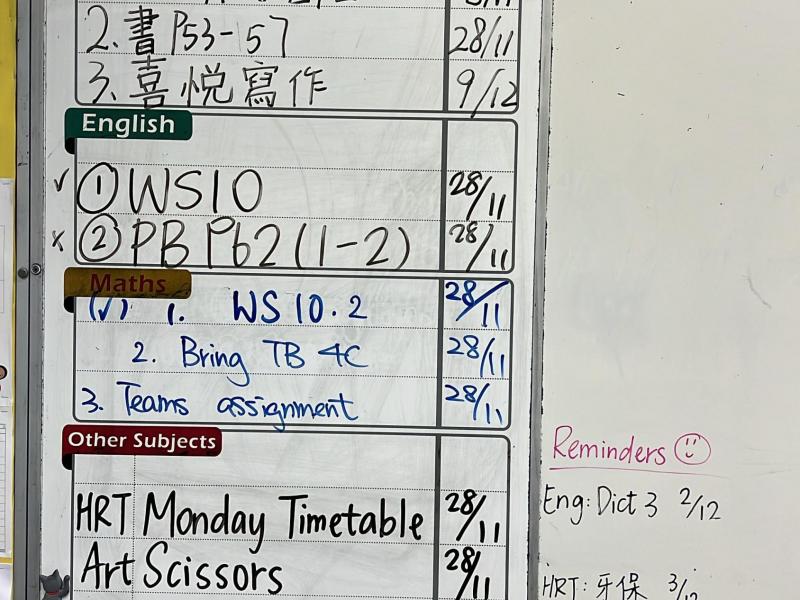 2. 書 P53-57 28/11
3. 喜悅寫作 9/12
English
✓ ① WS10 28/11
x ② PB P62 (1-2) 28/11
Maths
(✓) 1. WS 10.2 28/11
2. Bring TB 4C 28/11
3. Teams assignment 28/11
Other Subjects
HRT Monday Timetable 28/11
Art Scissors 28/11
Reminders ☺
Eng: Dict 3 2/12
HRT: 牙保 3/12